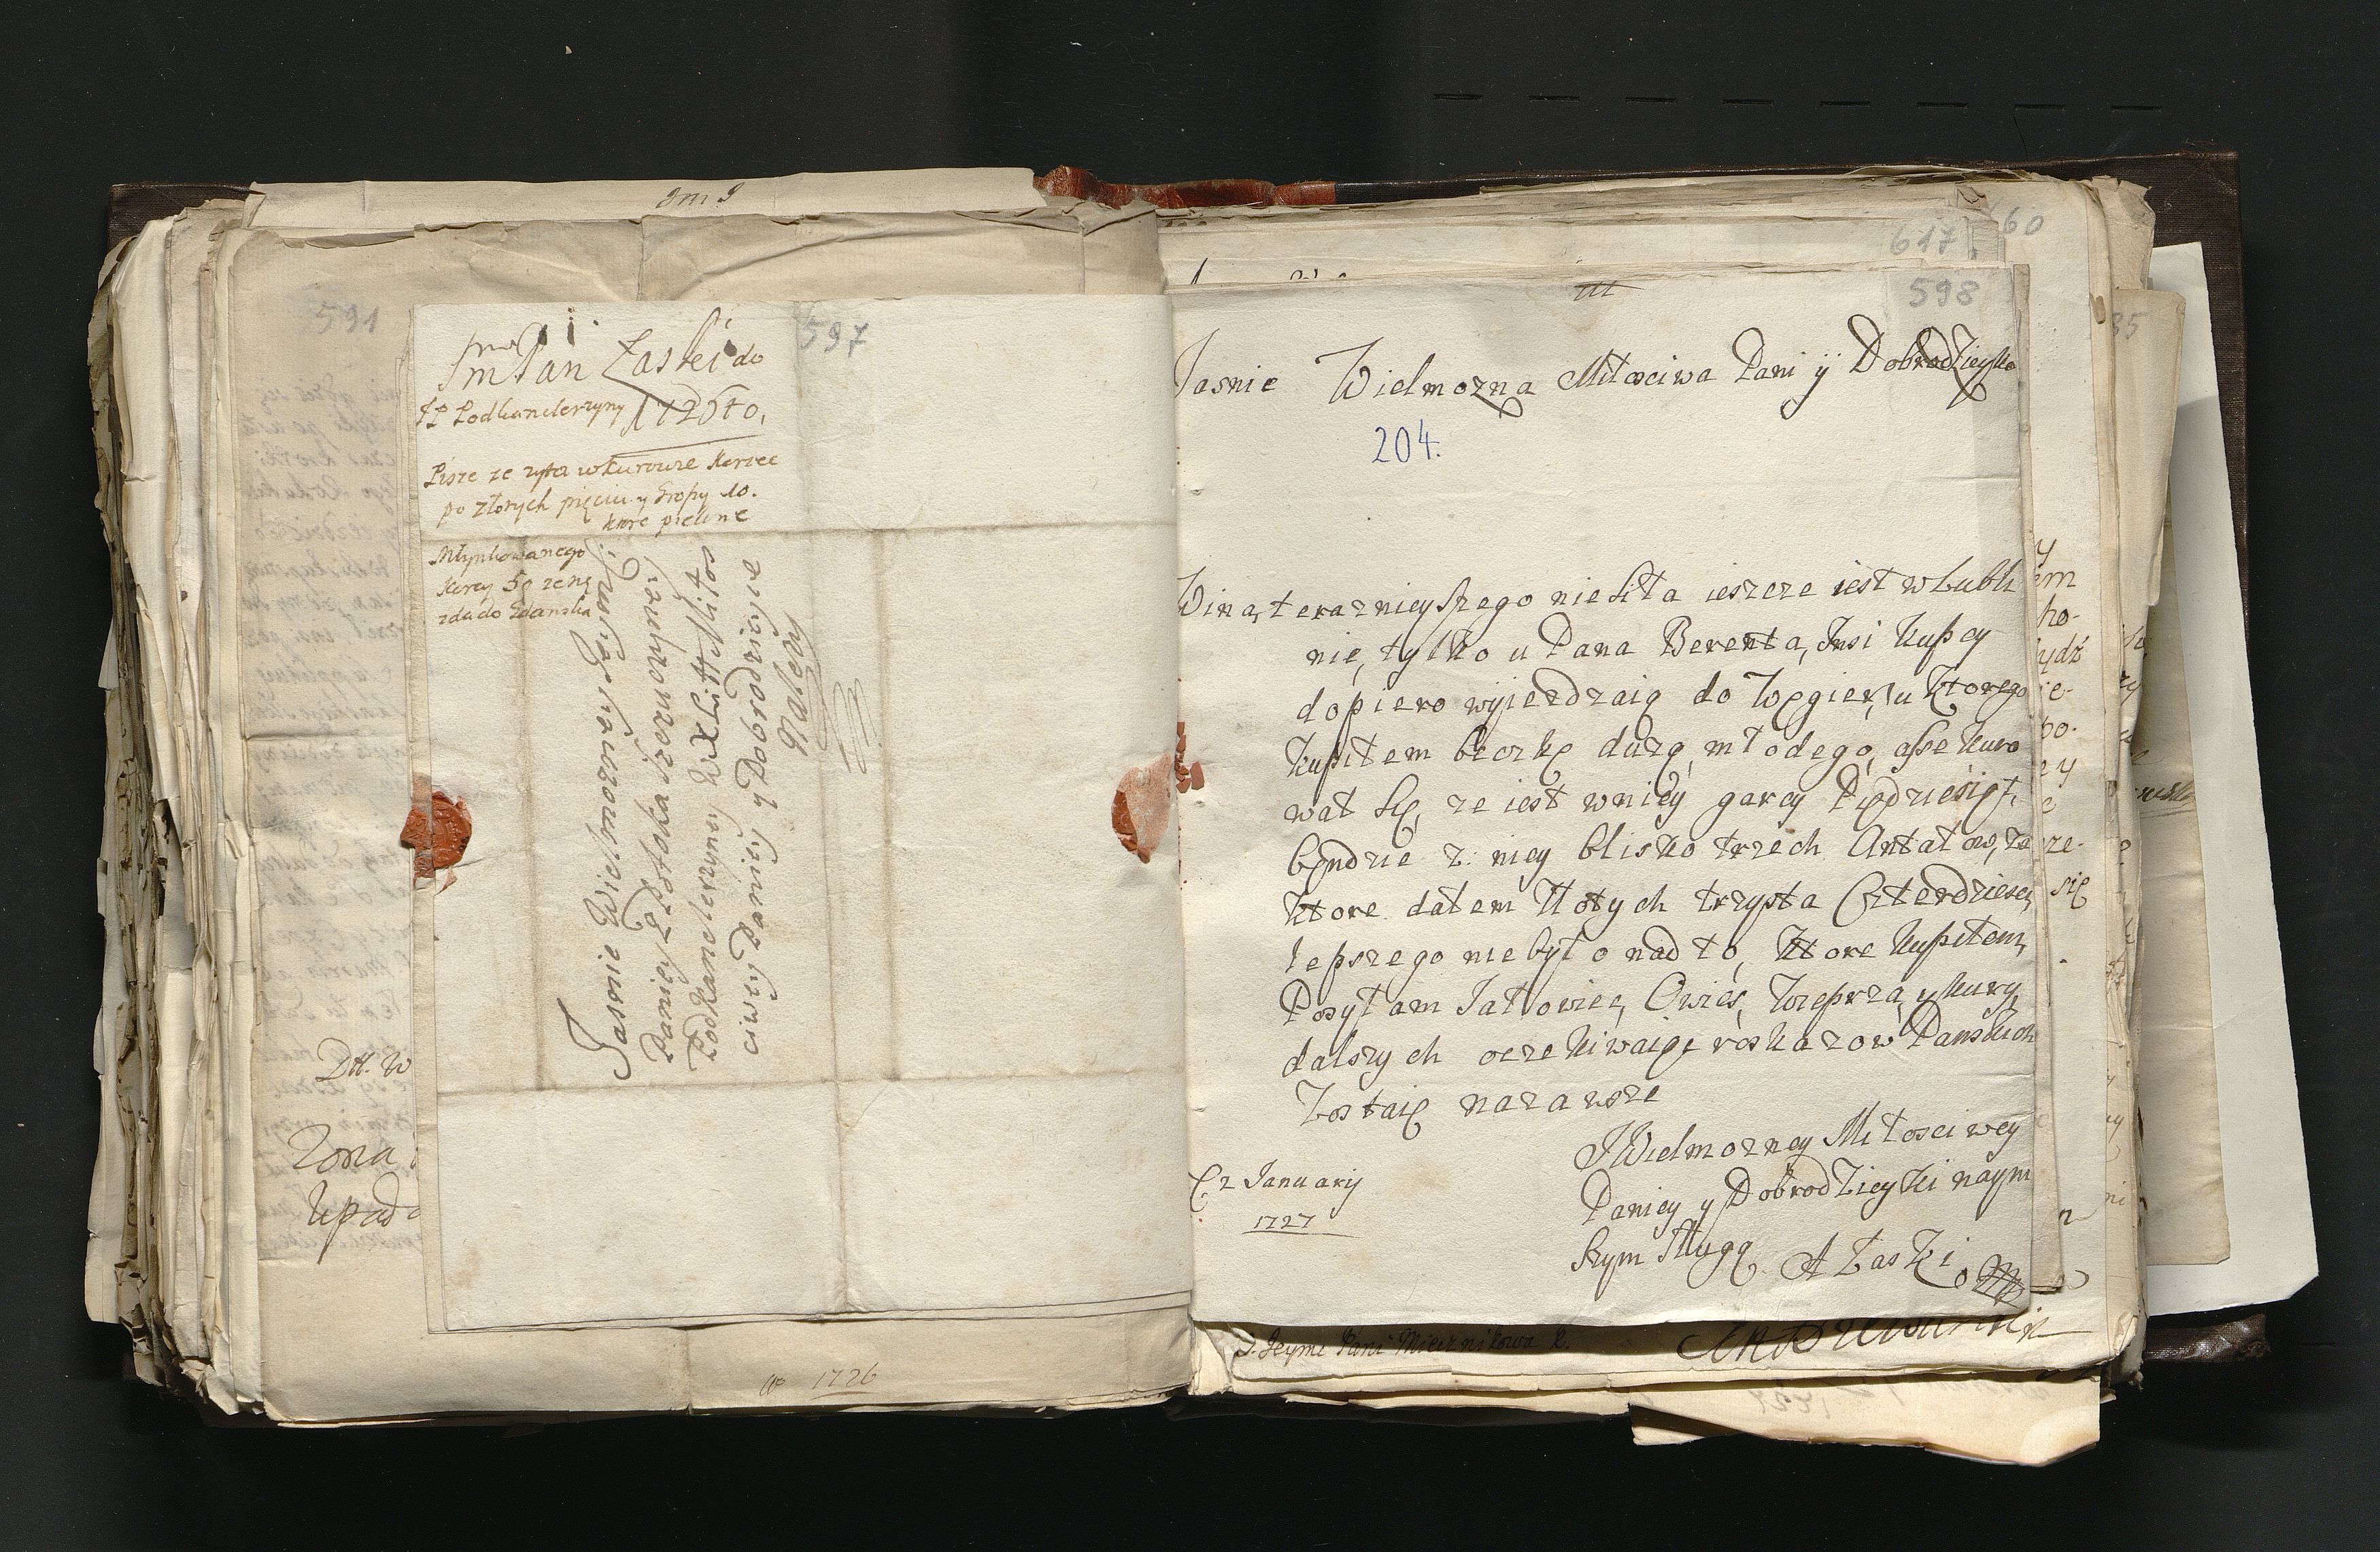 ImPan Łaski do
JP Podkanclerzyny
597
Pisze ze zyta w Kurowie Korzec
po złotych pięciu y Groszy 10.
ktore pielune
Młynkowanego
Korcy 50 zeną
zda do Gdanska
Jasnie Wielmozney Jeymci
Paniey P Potoka Szczuczyney
Podkanclerzyney W X Litt Miłos
ciwey Paniey y Dobrodzieyce
Nalezy
591
Dtt. W
Zona
Upad
1726
617
60
598
Jasnie Wielmozna Miłosciwa Pani ÿ Dobrodzieyko
204.
Wina teraznieyszego nie siła ieszcze iest w Lubli
nie, tylko u Pana Berenta, Insi kupcy
dopiero wyiezdzaią do Węgier, u ktorego
kupiłem beczkę duzą, młodego, assekuro
wał się, ze iest w niey garcy Pędziesiąt,
będzie z niey blisko trzech Antałow, za
ktore dałem Złotych trzysta Czterdziesci,
lepszego nie było nad to, ktore kupiłem,
Posyłam Jałowiec, Owies, Wieprza, y kury,
dalszych oczekiwaiąc roskazow Panskich
Zostaię na zawsze
JWielmozney Miłosciwey
Paniey y Dobrodzieyki naym
szym sługą
A Łaski
2 January
1727
J. Jeymc Pani Miecznikowa